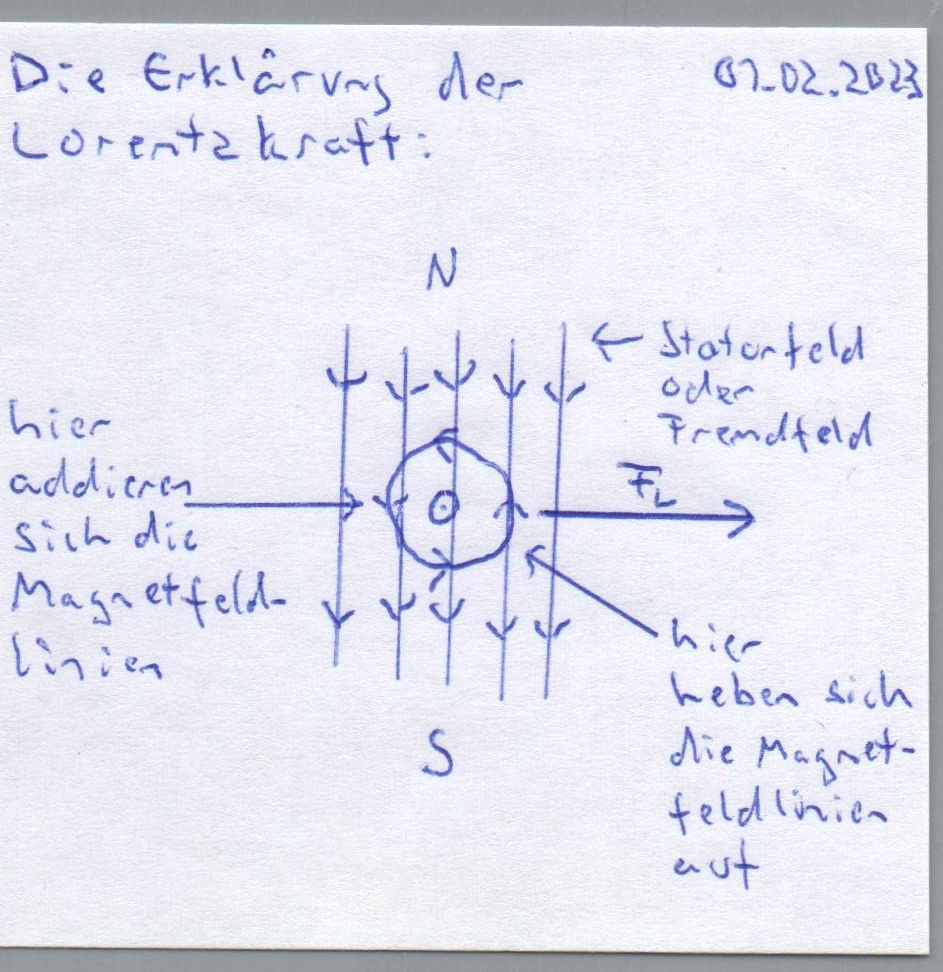 Die Erklärung der
Lorentzkraft:
07.02.2023
N
Statorfeld
oder
Fremdfeld
hier
addieren
sich die
Magnetfeld-
linien
F_L
hier
heben sich
die Magnet-
feldlinien
auf
S